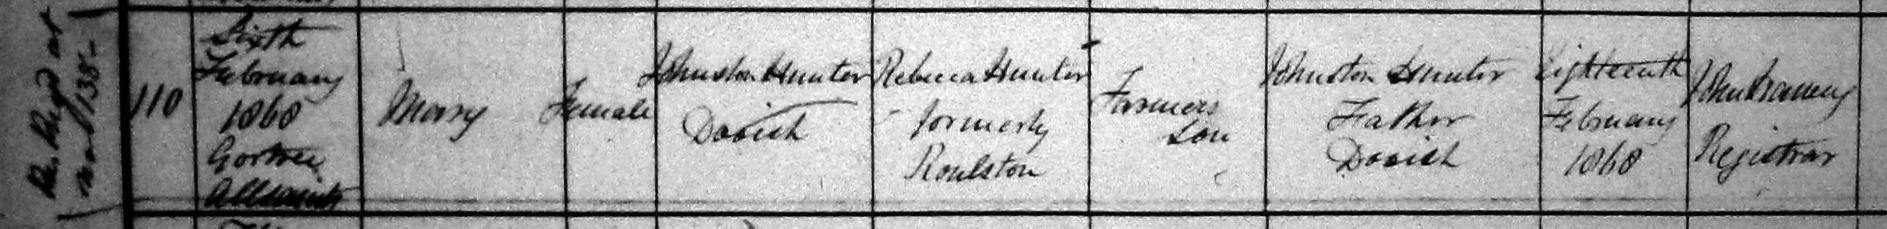 Re Regd at
No 138-
110
Sixth
February
1868
Gortree
Allsaints
Mary
Female
Johnston Hunter
Dooish
Rebecca Hunter
formerly
Roulston
Farmers
Son
Johnston Hunter
Father
Dooish
Eighteenth
February
1868
John
Registrar